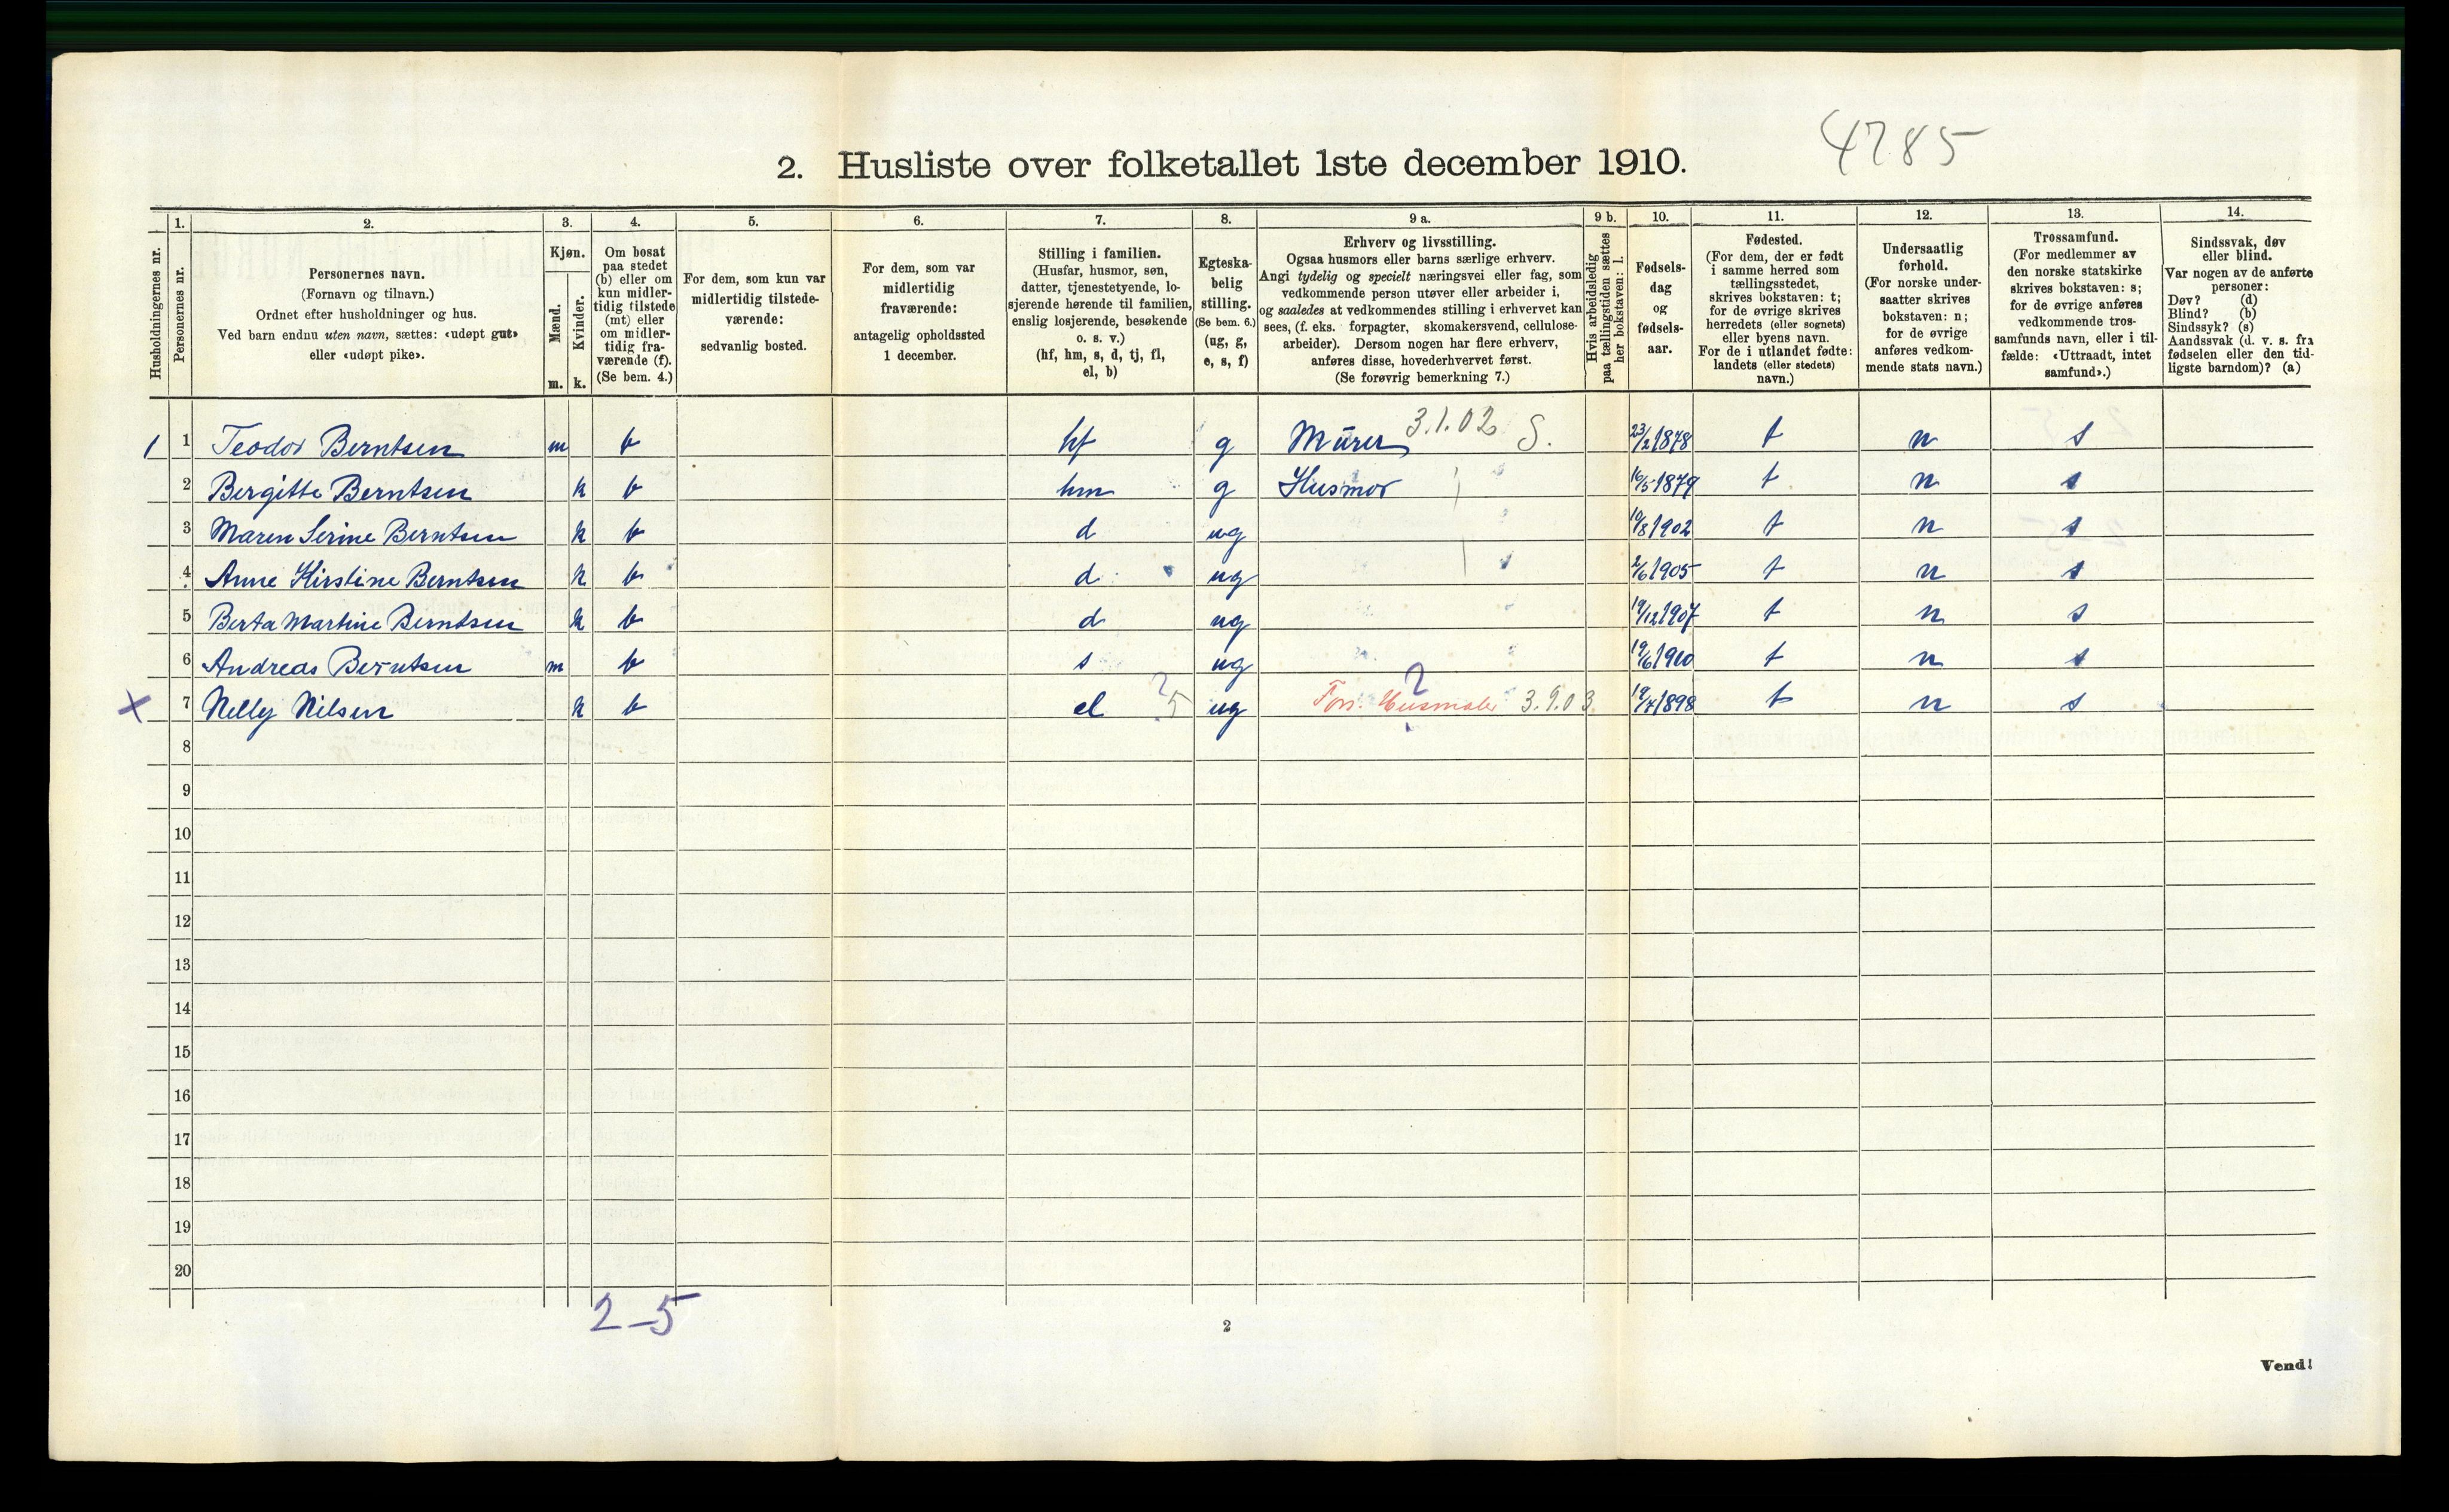 4785
2. Husliste over folketallet 1ste december 1910.
1. 2. 3. 4. 5. 6. 7. 8. 9 a. 9 b. 10. 11. 12. 13. 14.
Husholdningernes nr.
Personernes nr.
Personernes navn.
(Fornavn og tilnavn.)
Ordnet efter husholdninger og hus.
Ved barn endnu uten navn, sættes: «udøpt gut»
eller «udøpt pike».
Kjøn.
Mænd.
Kvinder.
m. k.
Om bosat
paa stedet
(b) eller om
kun midler-
tidig tilstede
(mt) eller
om midler-
tidig fra-
værende (f).
(Se bem. 4.)
For dem, som kun var
midlertidig tilstede-
værende:
sedvanlig bosted.
For dem, som var
midlertidig
fraværende:
antagelig opholdssted
1 december.
Stilling i familien.
(Husfar, husmor, søn,
datter, tjenestetyende, lo-
sjerende hørende til familien,
enslig losjerende, besøkende
o. s. v.)
(hf, hm, s, d, tj, fl,
el, b)
Egteska-
belig
stilling.
(Se bem. 6.)
(ug, g,
e, s, f)
Erhverv og livsstilling.
Ogsaa husmors eller barns særlige erhverv.
Angi tydelig og specielt næringsvei eller fag, som
vedkommende person utøver eller arbeider i,
og saaledes at vedkommendes stilling i erhvervet kan
sees, (f. eks. forpagter, skomakersvend, cellulose-
arbeider). Dersom nogen har flere erhverv,
anføres disse, hovederhvervet først.
(Se forøvrig bemerkning 7.)
Hvis arbeidsledig
paa tællingstiden sættes
her bokstaven: l.
Fødsels-
dag
og
fødsels-
aar.
Fødested.
(For dem, der er født
i samme herred som
tællingsstedet,
skrives bokstaven: t;
for de øvrige skrives
herredets (eller sognets)
eller byens navn.
For de i utlandet fødte:
landets (eller stedets)
navn.)
Undersaatlig
forhold.
(For norske under-
saatter skrives
bokstaven: n;
for de øvrige
anføres vedkom-
mende stats navn.)
Trossamfund.
(For medlemmer av
den norske statskirke
skrives bokstaven: s;
for de øvrige anføres
vedkommende tros-
samfunds navn, eller i til-
fælde: «Uttraadt, intet
samfund».)
Sindssvak, døv
eller blind.
Var nogen av de anførte
personer:
Døv? (d)
Blind? (b)
Sindssyk? (s)
Aandssvak (d. v. s. fra
fødselen eller den tid-
ligste barndom)? (a)
1 1 Teodor Berntsen m b hf g Murer 3.1.02 S. 23/2 1878 t n s
2 Bergitte Berntsen k b hm g Husmor 16/5 1879 t n s
3 Maren Serine Berntsen k b d ug 10/8 1902 t n s
4 Anne Kirstine Berntsen k b d ug 2/6 1905 t n s
5 Berta Martine Berntsen k b d ug 19/12 1907 t n s
6 Andreas Berntsen m b s ug 19/6 1910 t n s
x 7 Nelly Nilsen k b el ? 5 ug ? 3.9.03 1898 t n s
8
9
10
11
12
13
14
15
16
17
18
19
20
2-5
2
Vend!